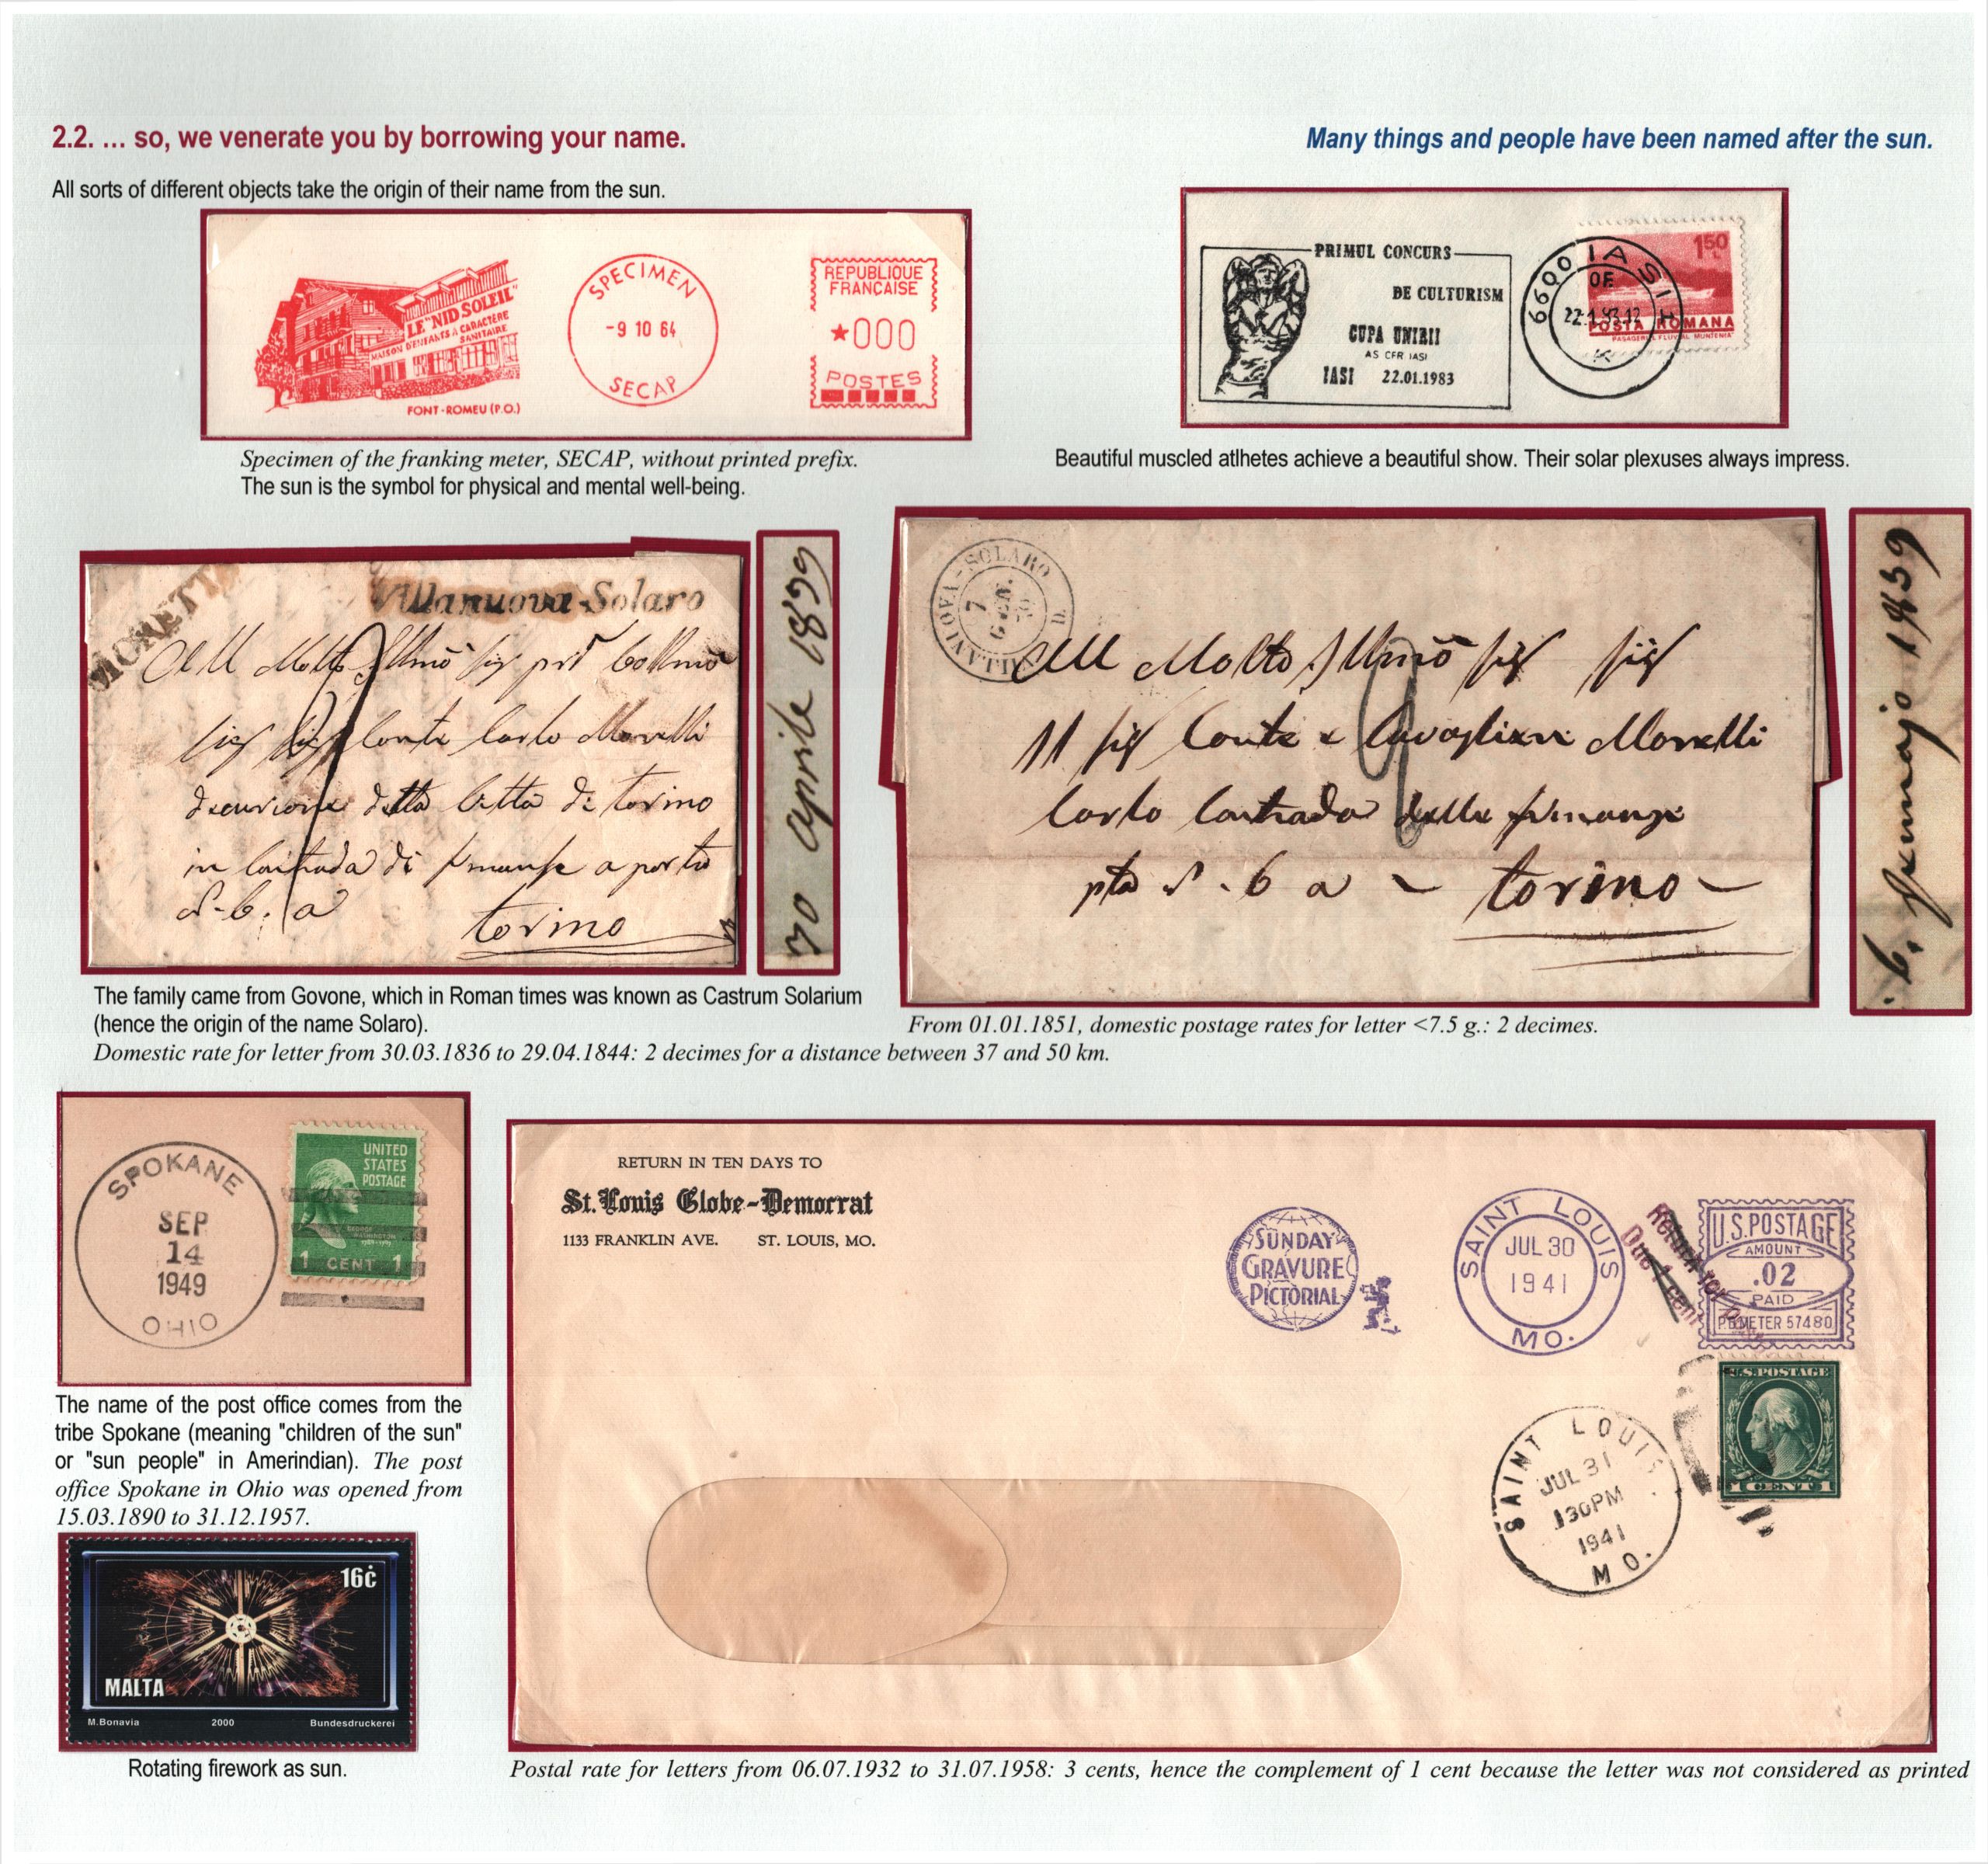 2.2. … so, we venerate you by borrowing your name.
Many things and people have been named after the sun.
All sorts of different objects take the origin of their name from the sun.
LE "NID SOLEIL"
MAISON D'ENFANTS À CARACTÈRE
SANITAIRE
FONT-ROMEU (P.O.)
SPECIMEN
-9 10 64
SECAP
REPUBLIQUE
FRANÇAISE
★000
POSTES
PRIMUL CONCURS
DE CULTURISM
CUPA UNIRII
AS CFR IASI
IASI 22.01.1983
6600 IASI
OF.
150
POSTA ROMANA
PASAGERUL FLUVIAL MUNTENIA
Specimen of the franking meter, SECAP, without printed prefix.
The sun is the symbol for physical and mental well-being.
Beautiful muscled atlhetes achieve a beautiful show. Their solar plexuses always impress.
MORETTA
Villanuova-Solaro
All Molto
Conte Carlo Morelli
della Citta di torino
in Contrada di
a
torino
30 aprile 1839
VILLANOVA-SOLARO
7
All Molto
Il sig Conte e Cavagliere Morelli
Carlo Contrada delle finanze
6 a torino
6. Gennajo 1859
The family came from Govone, which in Roman times was known as Castrum Solarium
(hence the origin of the name Solaro).
Domestic rate for letter from 30.03.1836 to 29.04.1844: 2 decimes for a distance between 37 and 50 km.
From 01.01.1851, domestic postage rates for letter <7.5 g.: 2 decimes.
SPOKANE
SEP
14
1949
OHIO
UNITED
STATES
POSTAGE
GEORGE
WASHINGTON
1 CENT 1
The name of the post office comes from the
tribe Spokane (meaning "children of the sun"
or "sun people" in Amerindian). The post
office Spokane in Ohio was opened from
15.03.1890 to 31.12.1957.
16ċ
MALTA
M.Bonavia 2000 Bundesdruckerei
Rotating firework as sun.
RETURN IN TEN DAYS TO
St. Louis Globe-Democrat
1133 FRANKLIN AVE. ST. LOUIS, MO.
SUNDAY
GRAVURE
PICTORIAL
SAINT LOUIS
JUL 30
1941
MO.
Return for
Due 1 cent
U.S.POSTAGE
AMOUNT
.02
PAID
P.B.METER 57480
U.S.POSTAGE
1 CENT 1
SAINT LOUIS
JUL 31
130PM
1941
MO.
Postal rate for letters from 06.07.1932 to 31.07.1958: 3 cents, hence the complement of 1 cent because the letter was not considered as printed